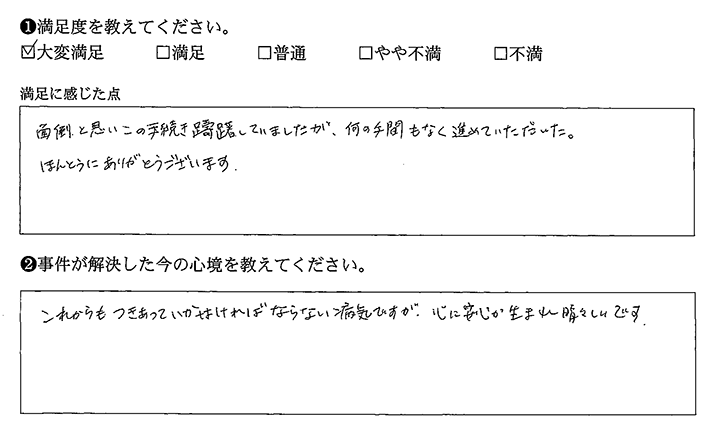 ❶満足度を教えてください。
☑大変満足 □満足 □普通 □やや不満 □不満
満足に感じた点
面倒と思いこの手続き躊躇していましたが、何の手間もなく進めていただいた。
ほんとうにありがとうございます.
❷事件が解決した今の心境を教えてください。
これからもつきあっていかなければならない病気ですが、心に安心が生まれ晴々しいです.